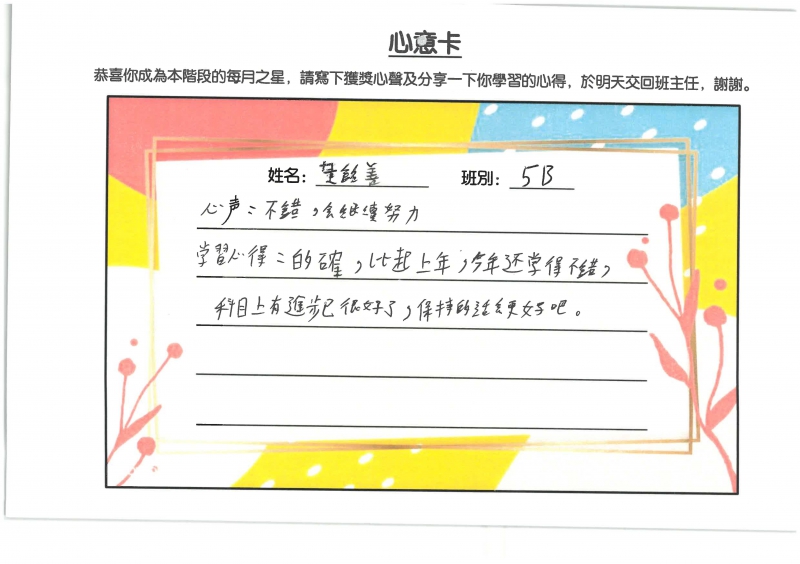 心意卡
恭喜你成為本階段的每月之星，請寫下獲獎心聲及分享一下你學習的心得，於明天交回班主任，謝謝。
姓名： 善 班別： 5B
心声：不錯，会継續努力
学習心得：的確，比起上年，今年还学得不錯，
科目上有進步已很好了，保持的話会更好吧。